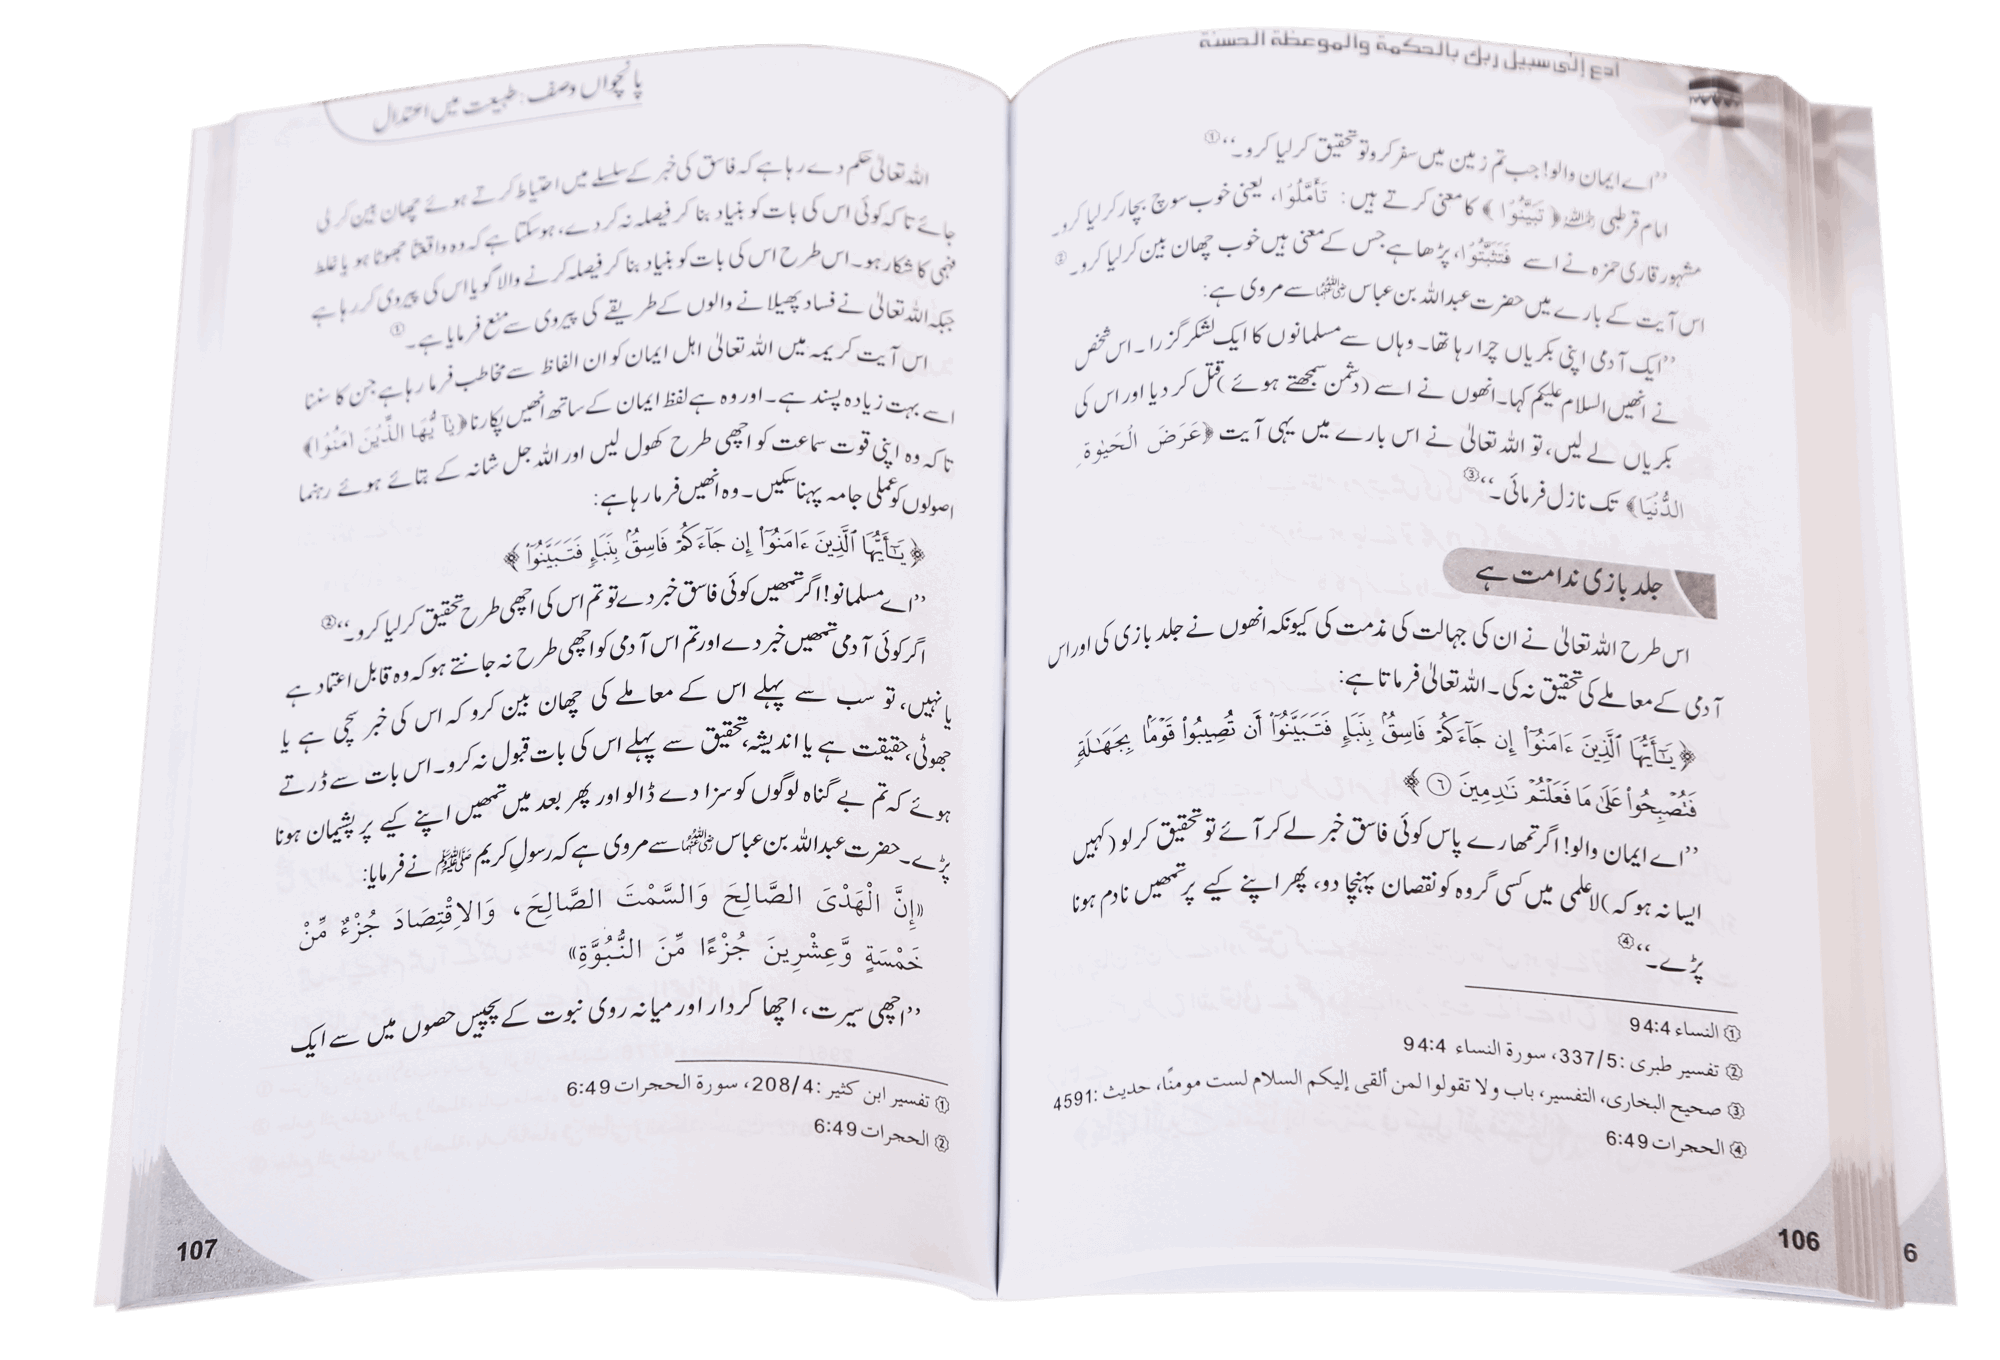 ادع إلى سبيل ربك بالحكمة والموعظة الحسنة
’’اے ایمان والو! جب تم زمین میں سفر کرو تو تحقیق کر لیا کرو۔‘‘①
امام قرطبی رحمہ اللہ ﴿تَبَيَّنُوْا﴾ کا معنی کرتے ہیں: تَأَمَّلُوْا، یعنی خوب سوچ بچار کر لیا کرو۔
مشہور قاری حمزہ نے اسے فَتَثَبَّتُوْا، پڑھا ہے جس کے معنی ہیں خوب چھان بین کر لیا کرو۔②
اس آیت کے بارے میں حضرت عبداللہ بن عباس رضی اللہ عنہما سے مروی ہے:
’’ایک آدمی اپنی بکریاں چرا رہا تھا۔ وہاں سے مسلمانوں کا ایک لشکر گزرا۔ اس شخص
نے انھیں السلام علیکم کہا۔ انھوں نے اسے (دشمن سمجھتے ہوئے) قتل کر دیا اور اس کی
بکریاں لے لیں، تو اللہ تعالیٰ نے اس بارے میں یہی آیت ﴿عَرَضَ الْحَيٰوةِ
الدُّنْيَا﴾ تک نازل فرمائی۔‘‘③
جلد بازی ندامت ہے
اس طرح اللہ تعالیٰ نے ان کی جہالت کی مذمت کی کیونکہ انھوں نے جلد بازی کی اور اس
آدمی کے معاملے کی تحقیق نہ کی۔ اللہ تعالیٰ فرماتا ہے:
﴿يَـٰٓأَيُّهَا ٱلَّذِينَ ءَامَنُوٓاْ إِن جَآءَكُمۡ فَاسِقُۢ بِنَبَإٖ فَتَبَيَّنُوٓاْ أَن تُصِيبُواْ قَوۡمَۢا بِجَهَٰلَةٖ
فَتُصۡبِحُواْ عَلَىٰ مَا فَعَلۡتُمۡ نَٰدِمِينَ ٦﴾
’’اے ایمان والو! اگر تمھارے پاس کوئی فاسق خبر لے کر آئے تو تحقیق کر لو (کہیں
ایسا نہ ہو کہ) لاعلمی میں کسی گروہ کو نقصان پہنچا دو، پھر اپنے کیے پر تمھیں نادم ہونا
پڑے۔‘‘④
① النساء 94:4
② تفسیر طبری: 337/5، سورۃ النساء 94:4
③ صحیح البخاری، التفسیر، باب ولا تقولوا لمن ألقى إليكم السلام لست مومنًا، حدیث: 4591
④ الحجرات 6:49
106
6
پانچواں وصف: طبیعت میں اعتدال
اللہ تعالیٰ حکم دے رہا ہے کہ فاسق کی خبر کے سلسلے میں احتیاط کرتے ہوئے چھان بین کر لی
جائے تاکہ کوئی اس کی بات کو بنیاد بنا کر فیصلہ نہ کر دے، ہو سکتا ہے کہ وہ واقعتًا جھوٹا ہو یا غلط
فہمی کا شکار ہو۔ اس طرح اس کی بات کو بنیاد بنا کر فیصلہ کرنے والا گویا اس کی پیروی کر رہا ہے
جبکہ اللہ تعالیٰ نے فساد پھیلانے والوں کے طریقے کی پیروی سے منع فرمایا ہے۔①
اس آیت کریمہ میں اللہ تعالیٰ اہل ایمان کو ان الفاظ سے مخاطب فرما رہا ہے جن کا سننا
اسے بہت زیادہ پسند ہے۔ اور وہ ہے لفظ ایمان کے ساتھ انھیں پکارنا ﴿يٰٓاَيُّهَا الَّذِيْنَ اٰمَنُوْا﴾
تاکہ وہ اپنی قوت سماعت کو اچھی طرح کھول لیں اور اللہ جل شانہ کے بتائے ہوئے رہنما
اصولوں کو عملی جامہ پہنا سکیں۔ وہ انھیں فرما رہا ہے:
﴿يَـٰٓأَيُّهَا ٱلَّذِينَ ءَامَنُوٓاْ إِن جَآءَكُمۡ فَاسِقُۢ بِنَبَإٖ فَتَبَيَّنُوٓاْ﴾
’’اے مسلمانو! اگر تمھیں کوئی فاسق خبر دے تو تم اس کی اچھی طرح تحقیق کر لیا کرو۔‘‘②
اگر کوئی آدمی تمھیں خبر دے اور تم اس آدمی کو اچھی طرح نہ جانتے ہو کہ وہ قابل اعتماد ہے
یا نہیں، تو سب سے پہلے اس کے معاملے کی چھان بین کرو کہ اس کی خبر سچی ہے یا
جھوٹی، حقیقت ہے یا اندیشہ، تحقیق سے پہلے اس کی بات قبول نہ کرو۔ اس بات سے ڈرتے
ہوئے کہ تم بے گناہ لوگوں کو سزا دے ڈالو اور پھر بعد میں تمھیں اپنے کیے پر پشیمان ہونا
پڑے۔ حضرت عبداللہ بن عباس رضی اللہ عنہما سے مروی ہے کہ رسولِ کریم ﷺ نے فرمایا:
«إِنَّ الْهَدْىَ الصَّالِحَ وَالسَّمْتَ الصَّالِحَ، وَالاِقْتِصَادَ جُزْءٌ مِّنْ
خَمْسَةٍ وَّعِشْرِينَ جُزْءًا مِّنَ النُّبُوَّةِ»
’’اچھی سیرت، اچھا کردار اور میانہ روی نبوت کے پچیس حصوں میں سے ایک
① تفسیر ابن کثیر: 208/4، سورۃ الحجرات 6:49
② الحجرات 6:49
107